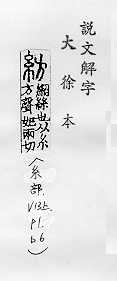 說文解字
大徐本
紡
網絲也从糸
方聲妃兩切
(糸部.
V13上.
P1.
b6)